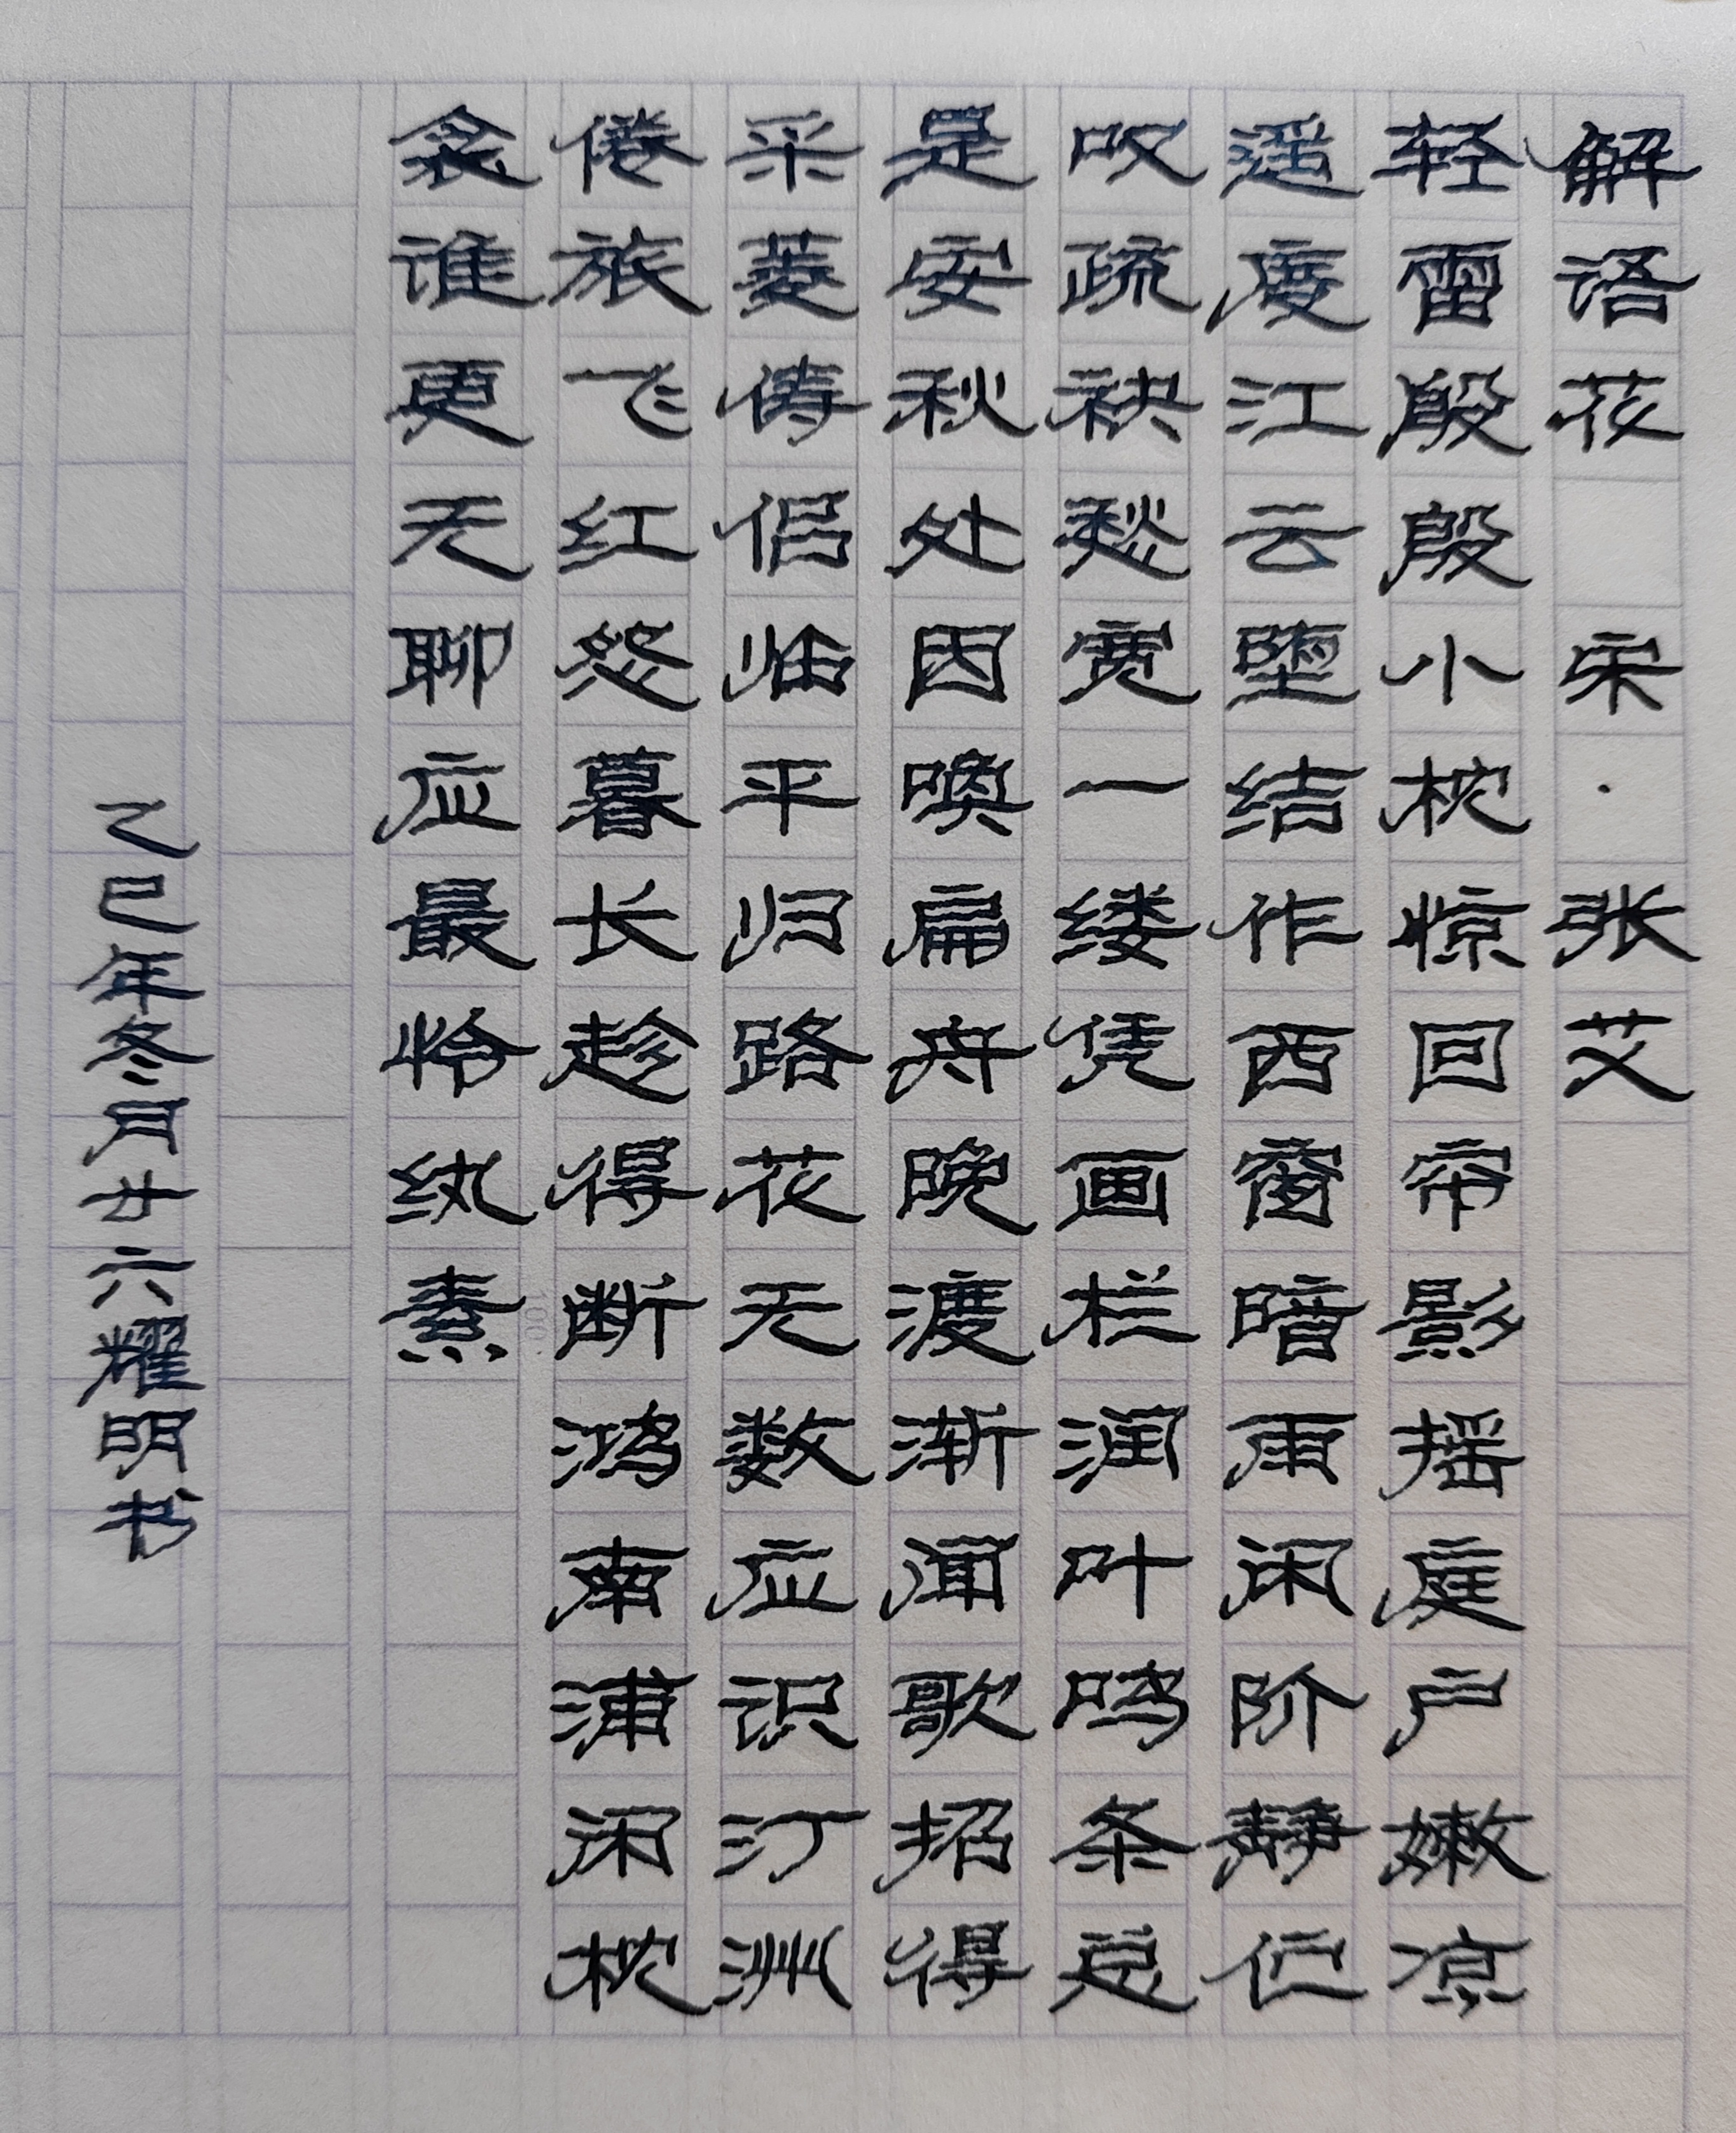 解语花 宋·张艾
轻雷殷殷小枕惊回帘影摇庭户嫩凉
遥度江云堕结作西窗暗雨闲阶静伫
叹疏袂愁宽一缕凭画栏润叶鸣条总
是安秋处因唤扁舟晚渡渐闻歌招得
采菱俦侣临平归路花无数应识汀洲
倦旅飞红怨暮长趁得断鸿南浦闲枕
衾谁更无聊应最怜纨素
乙巳年冬月廿六耀明书